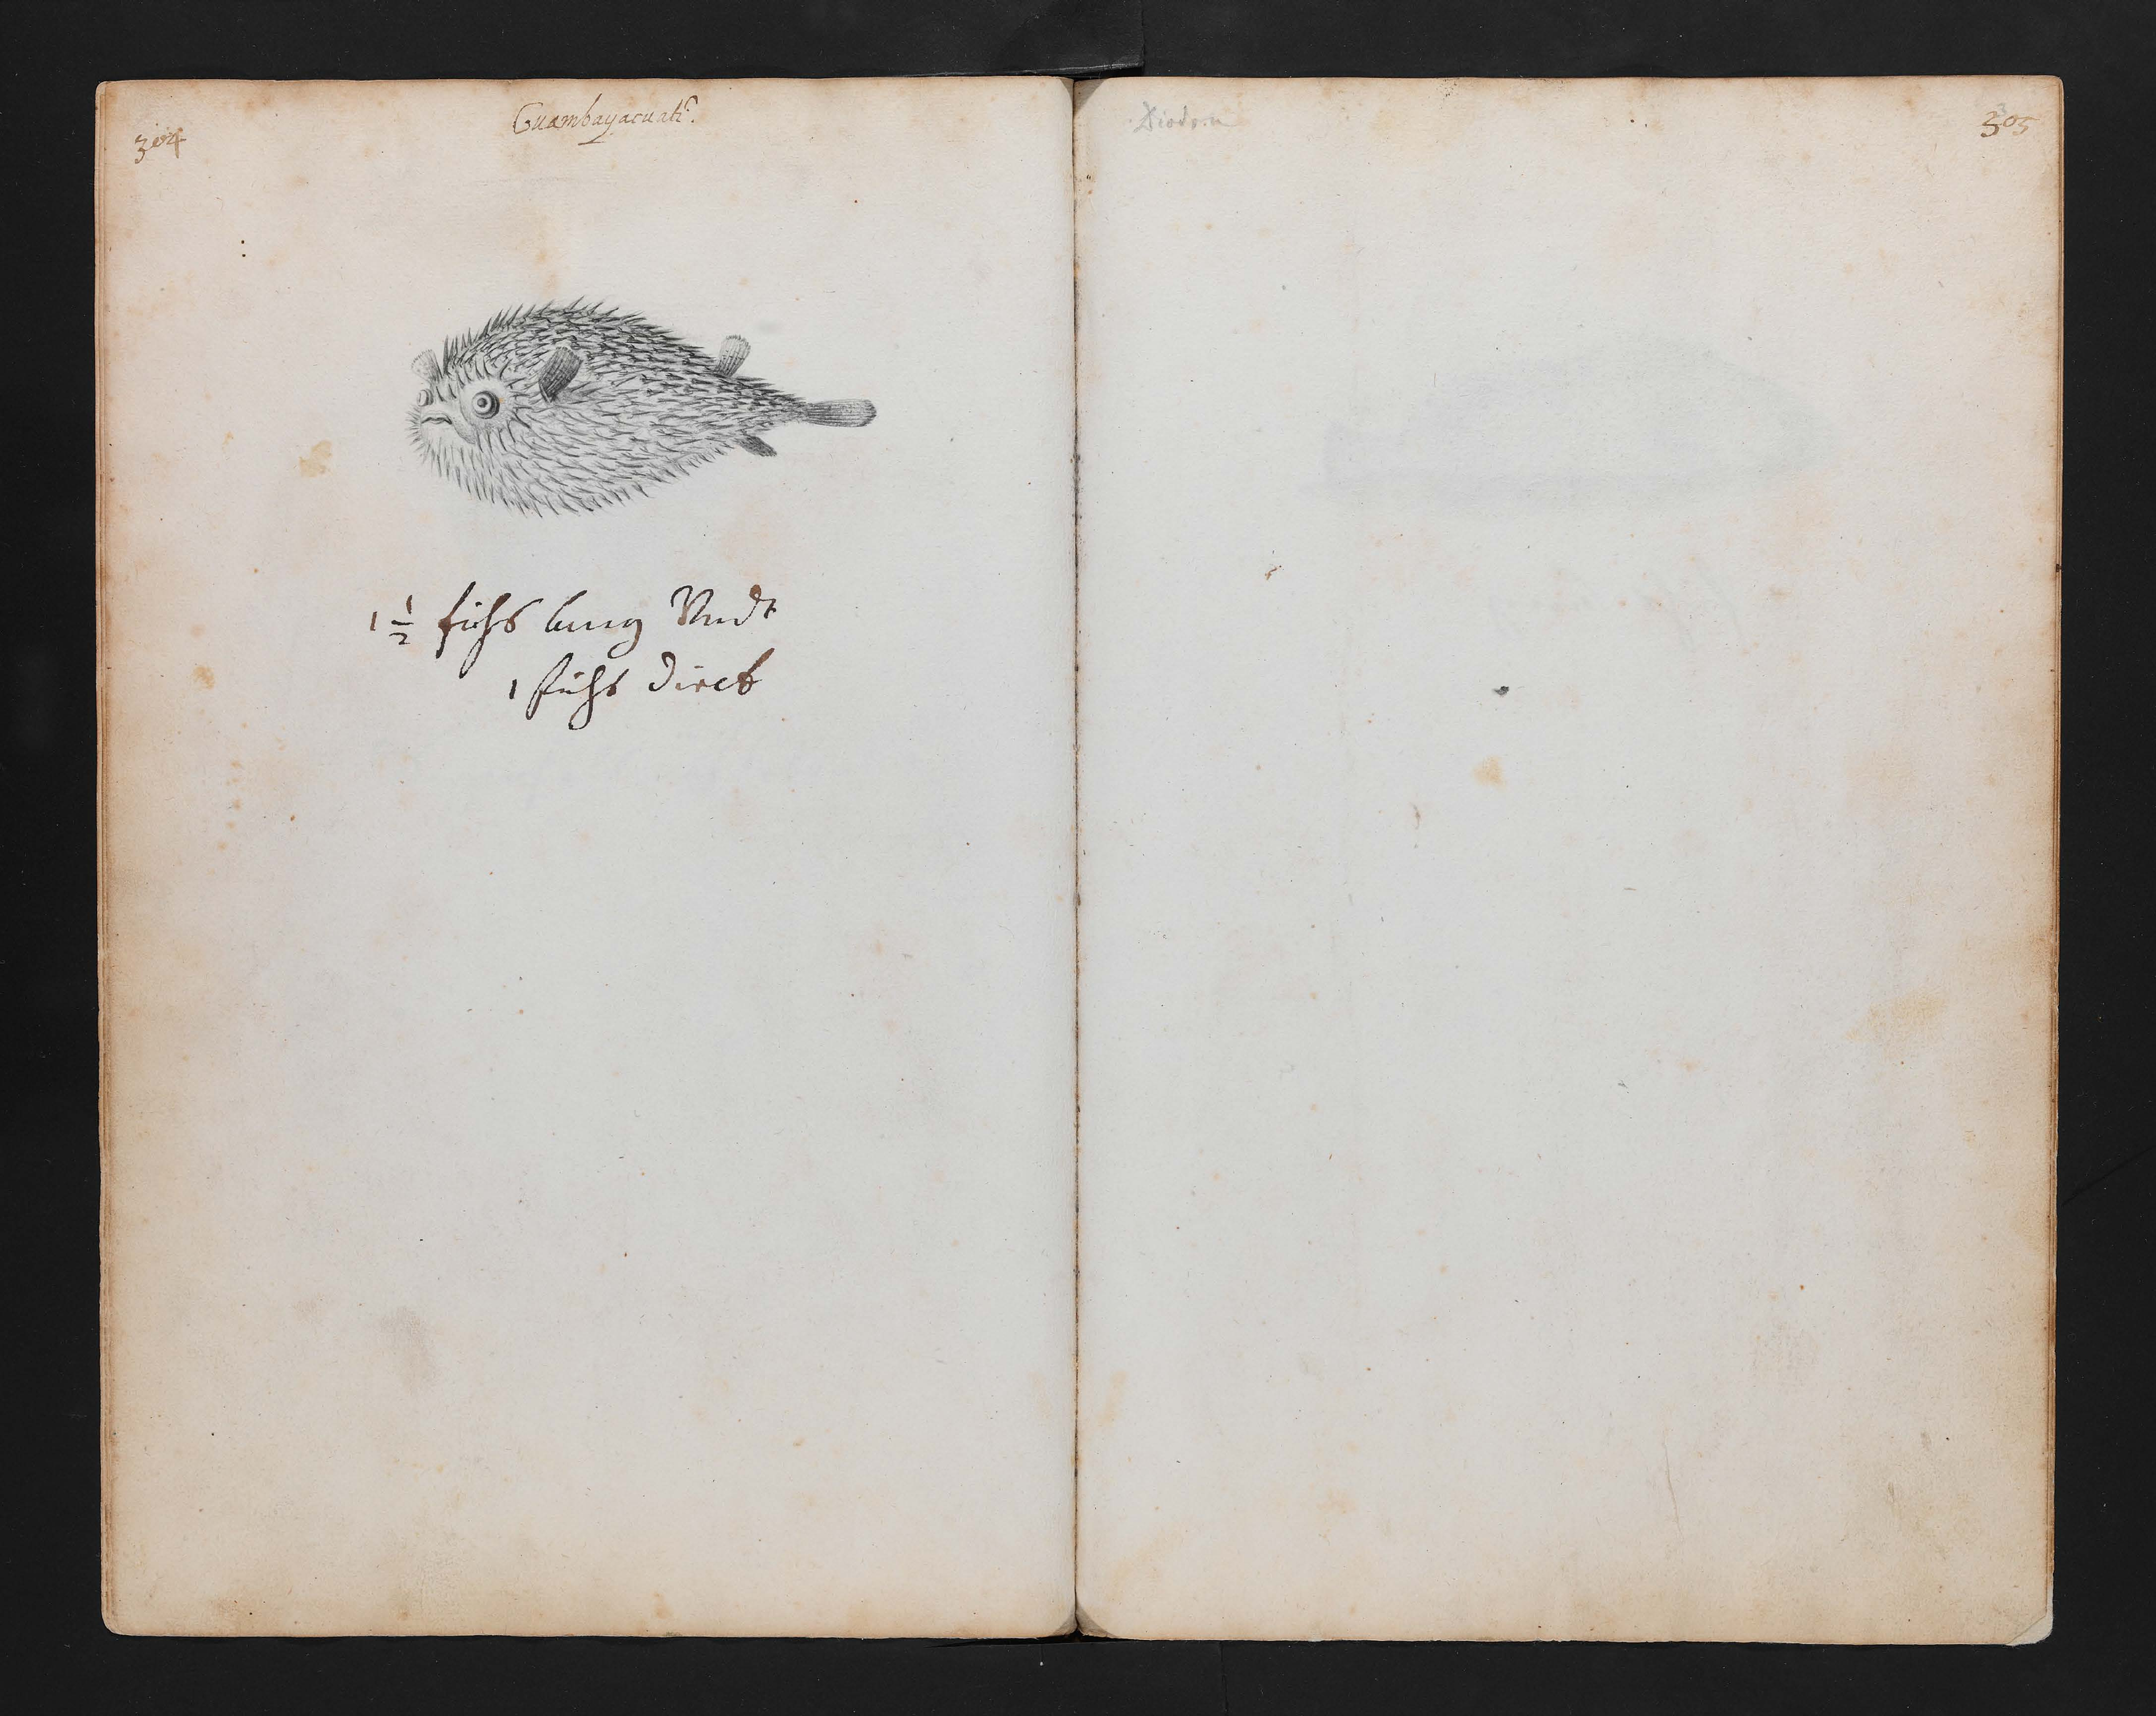 304
Guambayacuati.
1 1/2 fuhs lang Undt
1 fuhs dick
Diodon
305